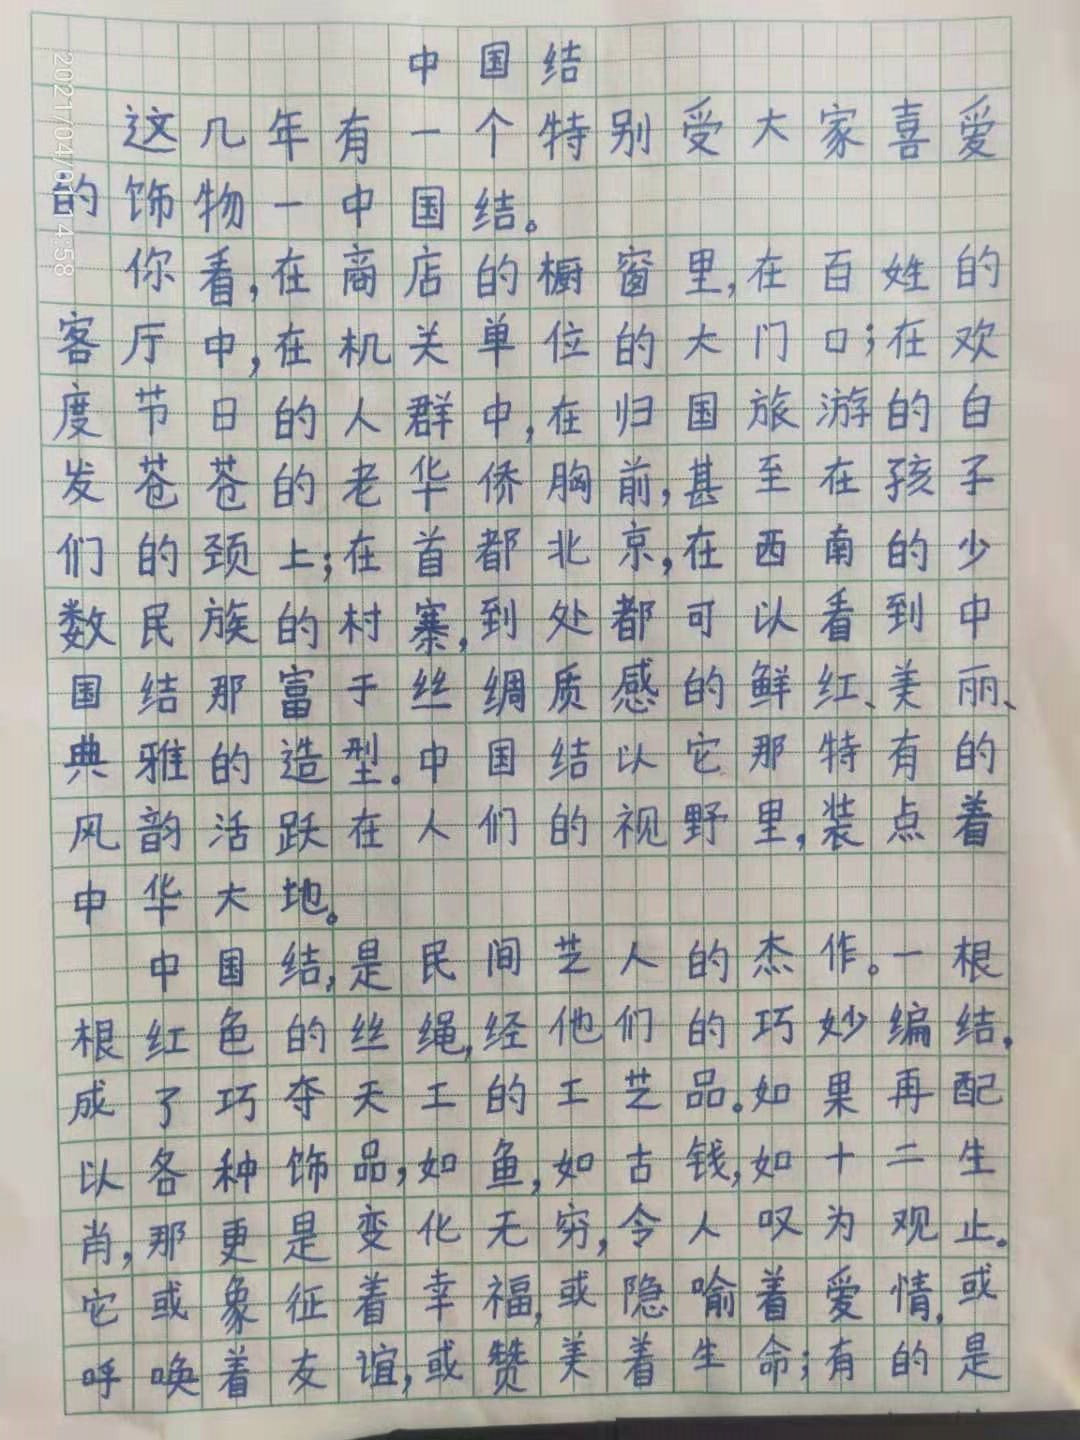 中国结
这几年有一个特别受大家喜爱
的饰物一中国结。
你看,在商店的橱窗里,在百姓的
客厅中,在机关单位的大门口;在欢
度节日的人群中,在归国旅游的白
发苍苍的老华侨胸前,甚至在孩子
们的颈上;在首都北京,在西南的少
数民族的村寨,到处都可以看到中
国结那富于丝绸质感的鲜红、美丽、
典雅的造型。中国结以它那特有的
风韵活跃在人们的视野里,装点着
中华大地。
中国结,是民间艺人的杰作。一根
根红色的丝绳,经他们的巧妙编结,
成了巧夺天工的工艺品。如果再配
以各种饰品,如鱼,如古钱,如十二生
肖,那更是变化无穷,令人叹为观止。
它或象征着幸福,或隐喻着爱情,或
呼唤着友谊,或赞美着生命;有的是